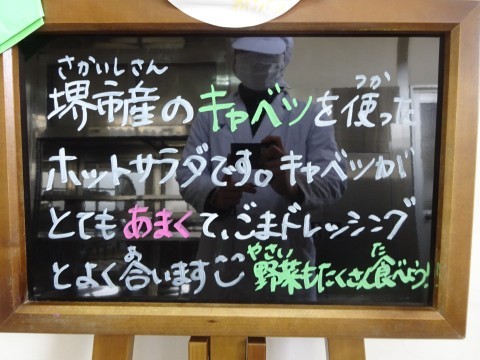 さかいしさん
堺市産のキャベツを使った
つか
ホットサラダです。キャベツが
とてもあまくて、ごまドレッシング
あ
とよく合います
やさい た
野菜もたくさん食べよう!!